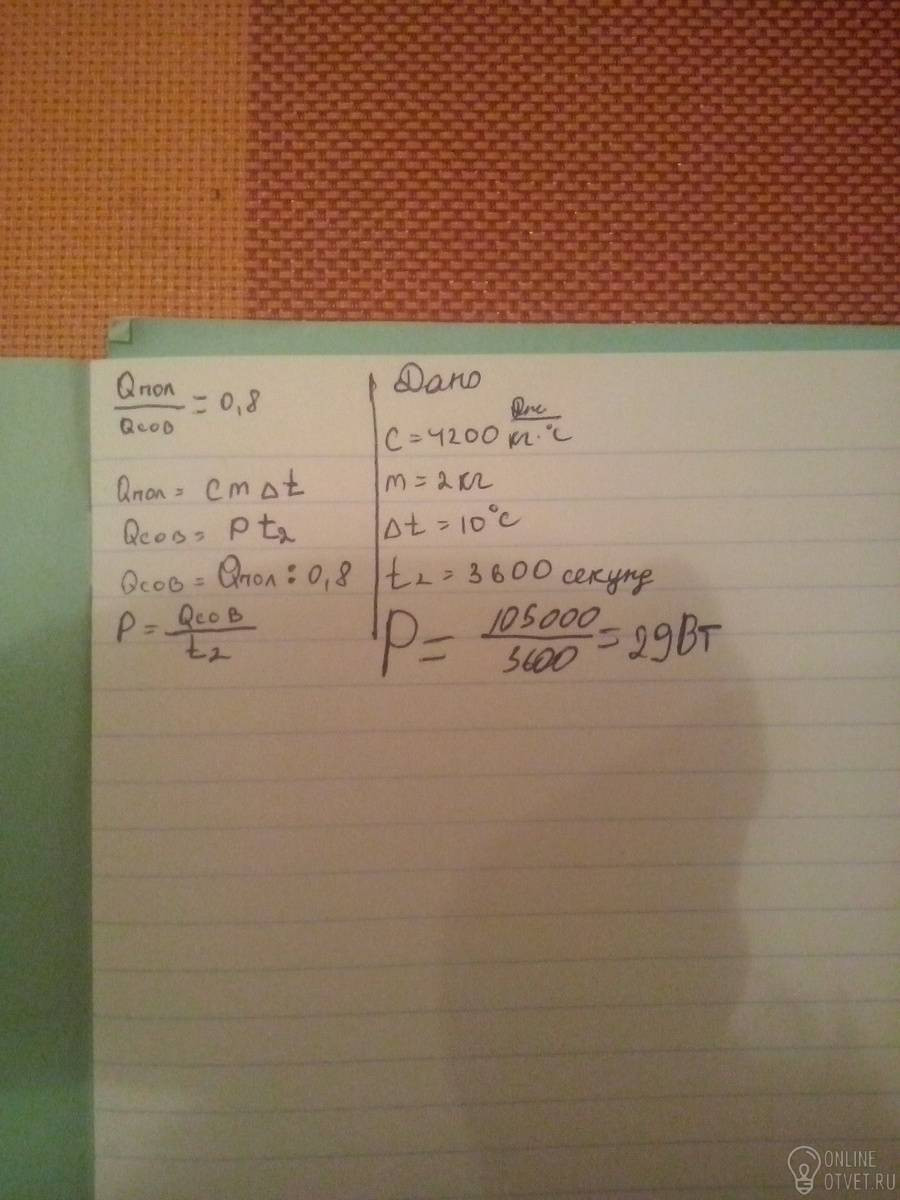 Qпол
Qсов
= 0,8
Qпол = c m Δt
Qсов = P t2
Qсов = Qпол : 0,8
P = Qсов
t2
Дано
C = 4200 Дж
кг·°C
m = 2 кг
Δt = 10°C
t2 = 3600 секунд
P = 105000
3600
= 29 Вт
ONLINE
OTVET.RU